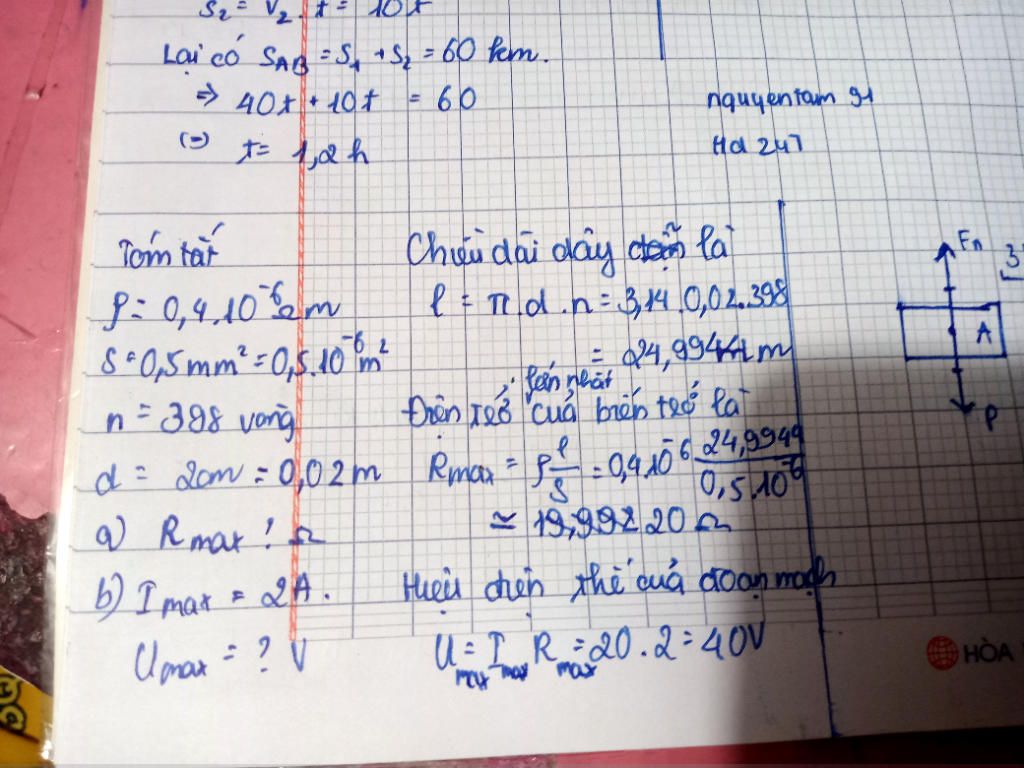 S₂ = V₂ . t = 10t
Lại có S_AB = S₁ + S₂ = 60 km.
⇒ 40t + 10t = 60
(=) t = 1,2 h
nguyentam 91
Hd 247
Tóm tắt
ρ = 0,4.10⁻⁶ Ωm
S = 0,5 mm² = 0,5.10⁻⁶ m²
n = 398 vòng
d = 2cm = 0,02 m
a) Rmax ? Ω
b) Imax = 2A.
Umax = ? V
Chiều dài dây dẫn là
l = π . d . n = 3,14 . 0,02 . 398
= 24,9944 m
Điện trở lớn nhất của biến trở là
Rmax = ρ l/S = 0,4.10⁻⁶ 24,9944/0,5.10⁻⁶
≃ 19,99 ≈ 20 Ω
Hiệu điện thế của đoạn mạch
Umax = Imax Rmax = 20 . 2 = 40V
Fn
3
A
P
HÒA